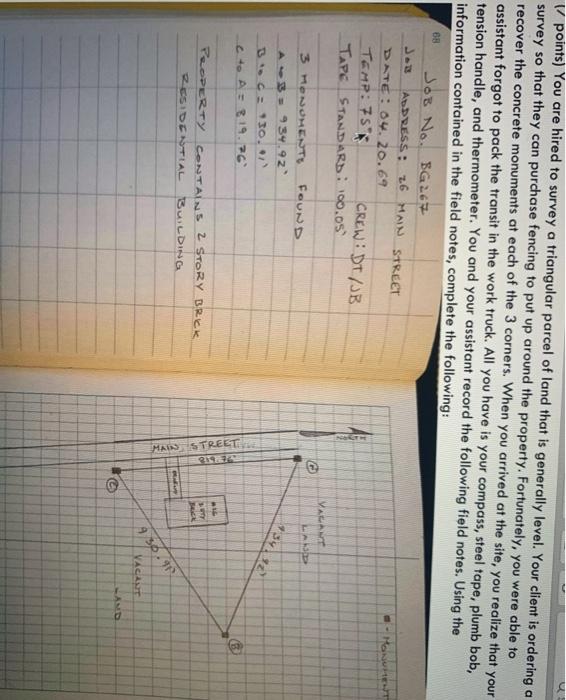 points) You are hired to survey a triangular parcel of land that is generally level. Your client is ordering a
survey so that they can purchase fencing to put up around the property. Fortunately, you were able to
recover the concrete monuments at each of the 3 corners. When you arrived at the site, you realize that your
assistant forgot to pack the transit in the work truck. All you have is your compass, steel tape, plumb bob,
tension handle, and thermometer. You and your assistant record the following field notes. Using the
information contained in the field notes, complete the following:
68
JOB NO. BG267
JOB ADDRESS: 26 MAIN STREET
DATE: 04.20.69
TEMP: 75° CREW: DT/JB
TAPE STANDARD: 100.05'
3 MONUMENTS FOUND
A to B = 934.92'
B to C = 930.91'
C to A = 819.76'
PROPERTY CONTAINS 2 STORY BRCK
RESIDENTIAL BUILDING
- MONUMENT
NORTH
A
VACANT
LAND
934.92'
B
MAIN STREET
819.76'
#26
2 STY
BRCK
C
930.91'
VACANT
LAND